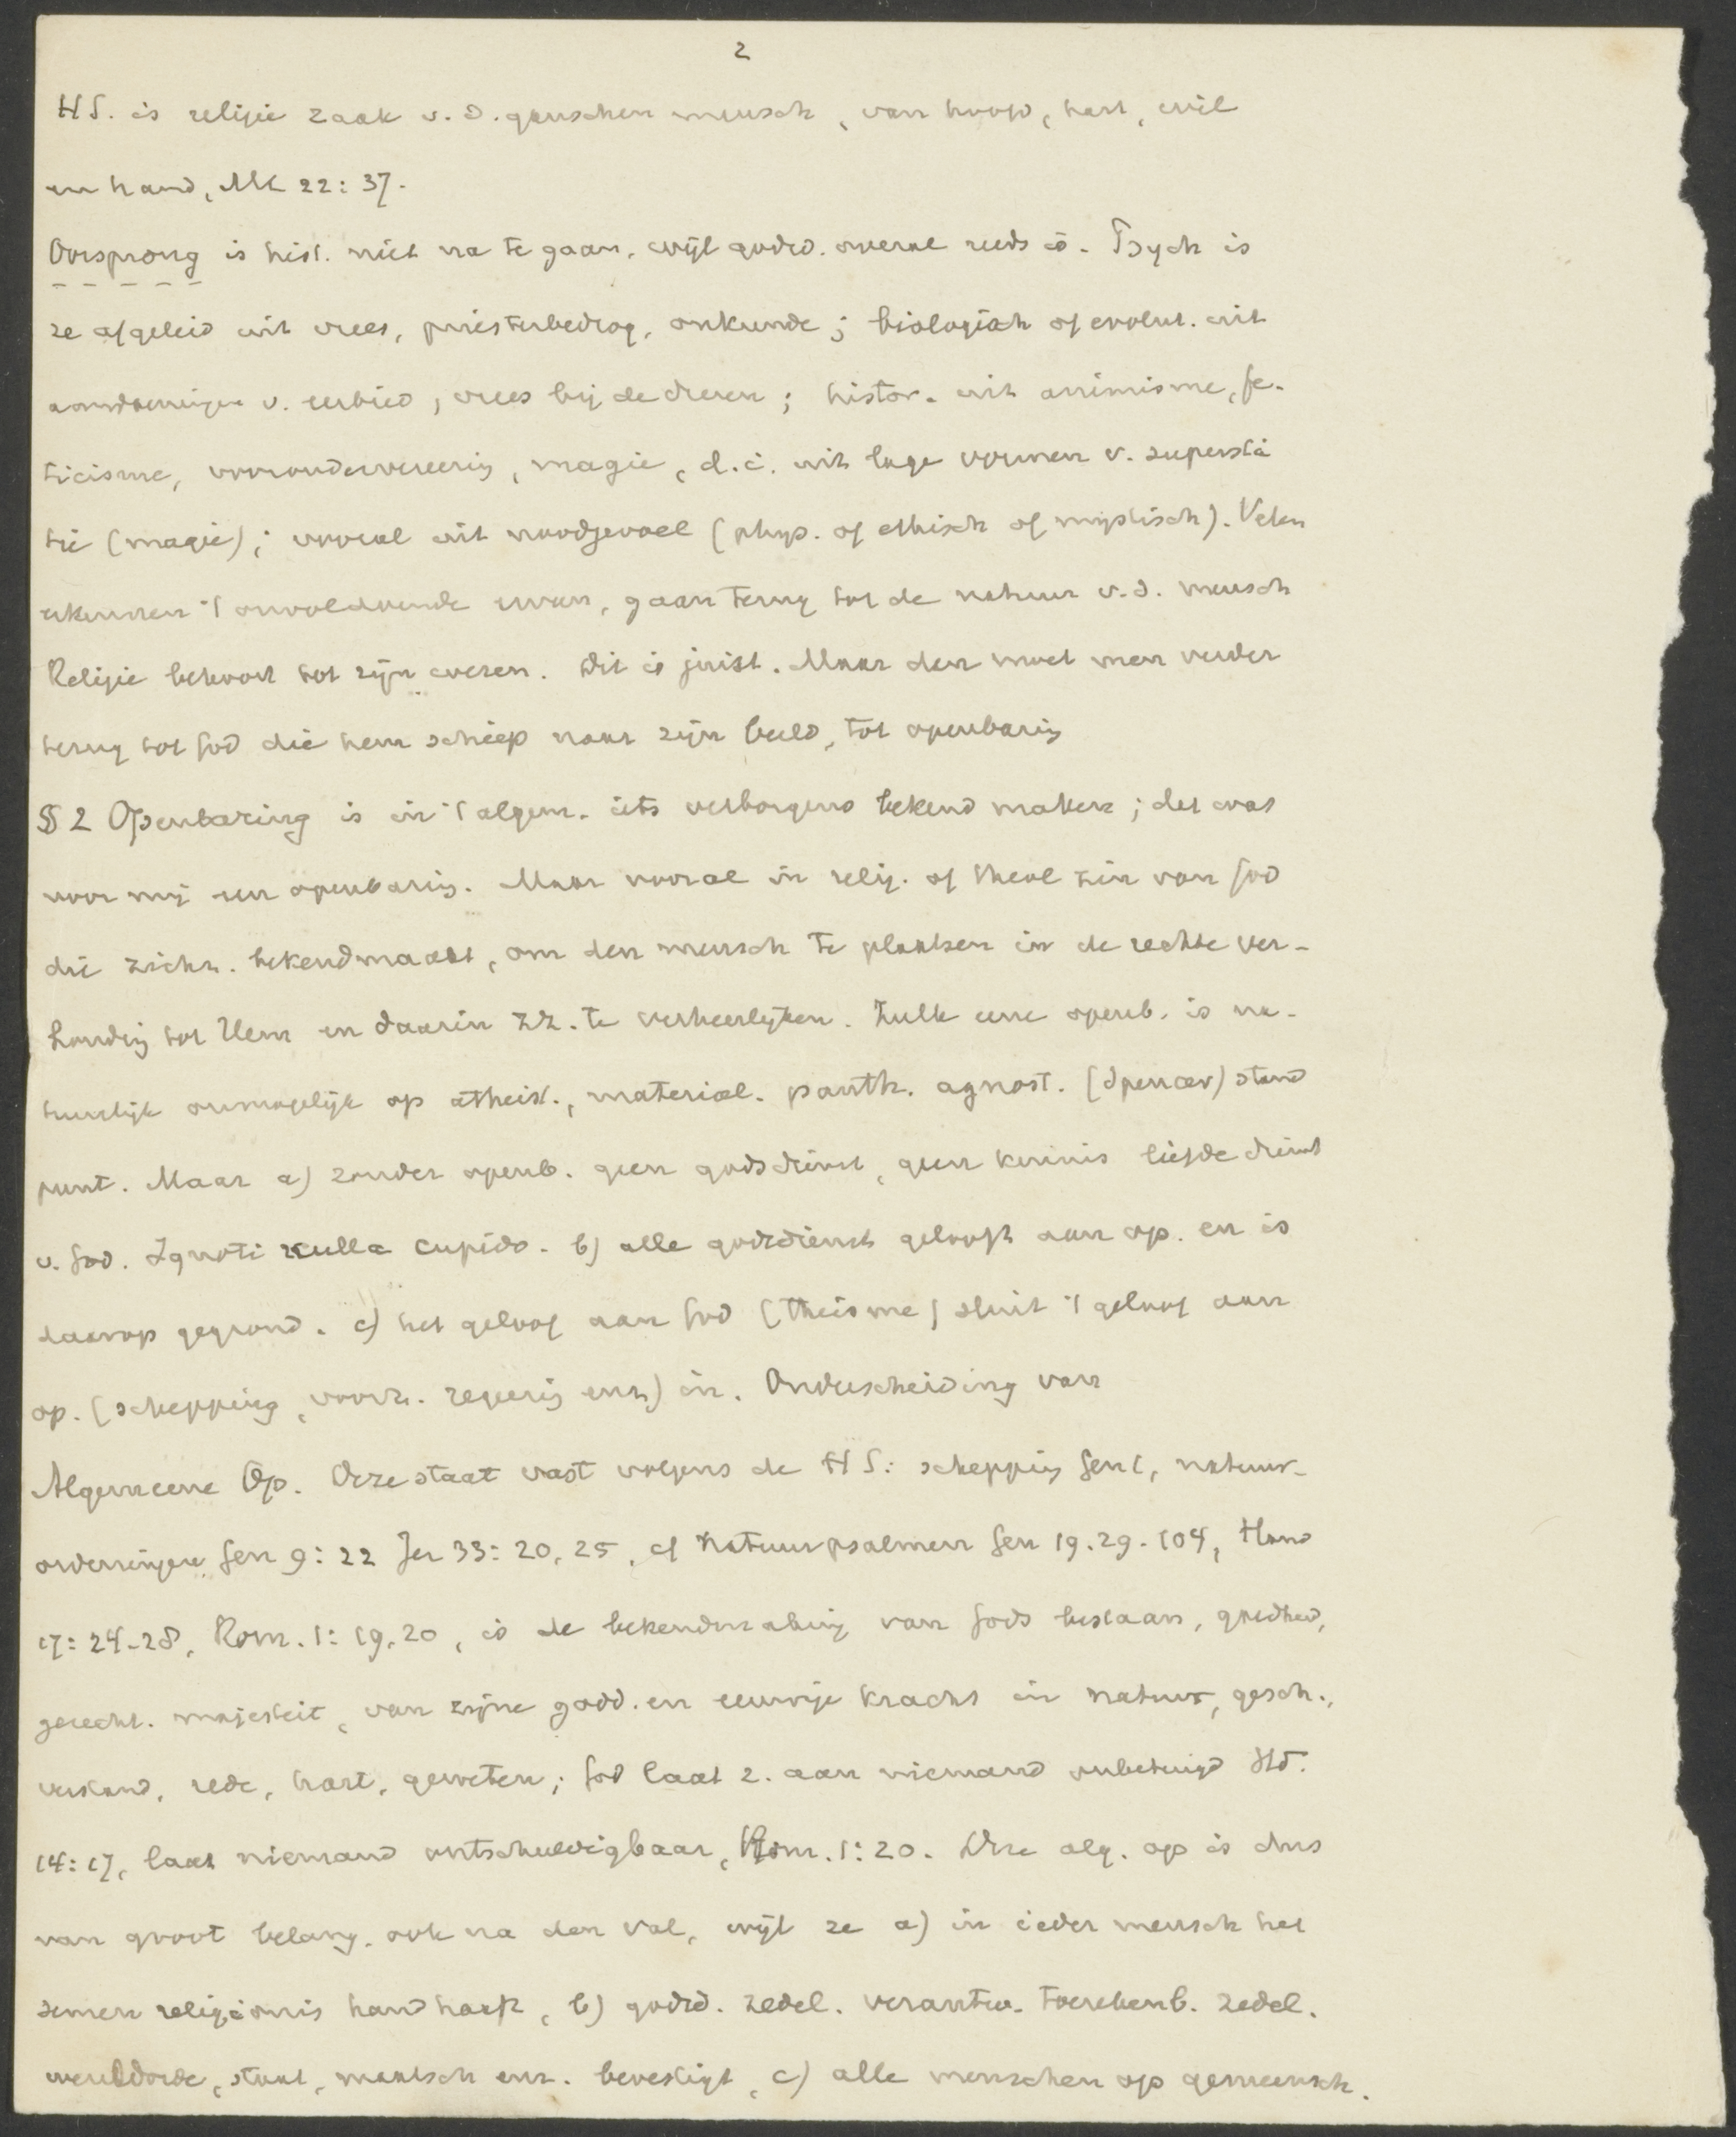 2
HS. is religie zaak v. d. ganschen mensch, van hoofd, hart, wil
en hand, Mt 22: 37.
Oorsprong is hist. niet na te gaan, wijl godsd. overal reeds is. Psych is
ze afgeleid uit vrees, priesterbedrog, onkunde; biologisch of evolut. uit
aandoeningen v. eerbied, vrees bij de dieren; histor. uit animisme, fe-
ticisme, voorouderverering, magie, d. i. uit lage vormen v. supersti
tie (magie); vooral uit noodgevoel (phys. of ethisch of mystisch). Velen
erkennen 't onvoldoende ervan, gaan terug tot de natuur v. d. mensch
Religie behoort tot zijn wezen. Dit is juist. Maar dan moet men verder
terug tot God die hem schiep naar zijn beeld, tot openbaring
§ 2 Openbaring is in 't algem. iets verborgens bekend maken; dat was
voor mij een openbaring. Maar vooral in relig. of theol zin van God
die zichz. bekendmaakt, om den mensch te plaatsen in de rechte ver-
houding tot Hem en daarin zz. te verheerlijken. Zulk eene openb. is na-
tuurlijk onmogelijk op atheist., material. panth. agnost. (Spencer) stand
punt. Maar a) zonder openb. geen godsdienst, geen kennis liefde dienst
v. God. Ignoti nulla cupido. b) alle godsdienst gelooft aan op. en is
daarop gegrond. c) het geloof aan God (theisme) sluit 't geloof aan
op. (schepping, voorz. regering enz) in. Onderscheiding van
Algemeene Op. Deze staat vast volgens de HS: schepping Gen 1, natuur-
ordeningen Gen 9: 22 Jer 33: 20, 25, cf natuurpsalmen Gen 19. 29. 104, Hand
17: 24-28, Rom. 1: 19, 20, is de bekendmaking van Gods bestaan, goedheid,
gerecht. majesteit, van zijne godd. en eeuwige kracht in natuur, gesch.,
verstand, rede, hart, geweten; God laat z. aan niemand onbetuigd Hd.
14: 17, laat niemand ontschuldigbaar, Rom. 1: 20. Deze alg. op is dus
van groot belang, ook na den val, wijl ze a) in ieder mensch het
semen religionis handhaaft, b) godsd. zedel. verantw. toerekenb. zedel.
wereldorde, staat, maatsch enz. bevestigt, c) alle menschen op gemeensch.